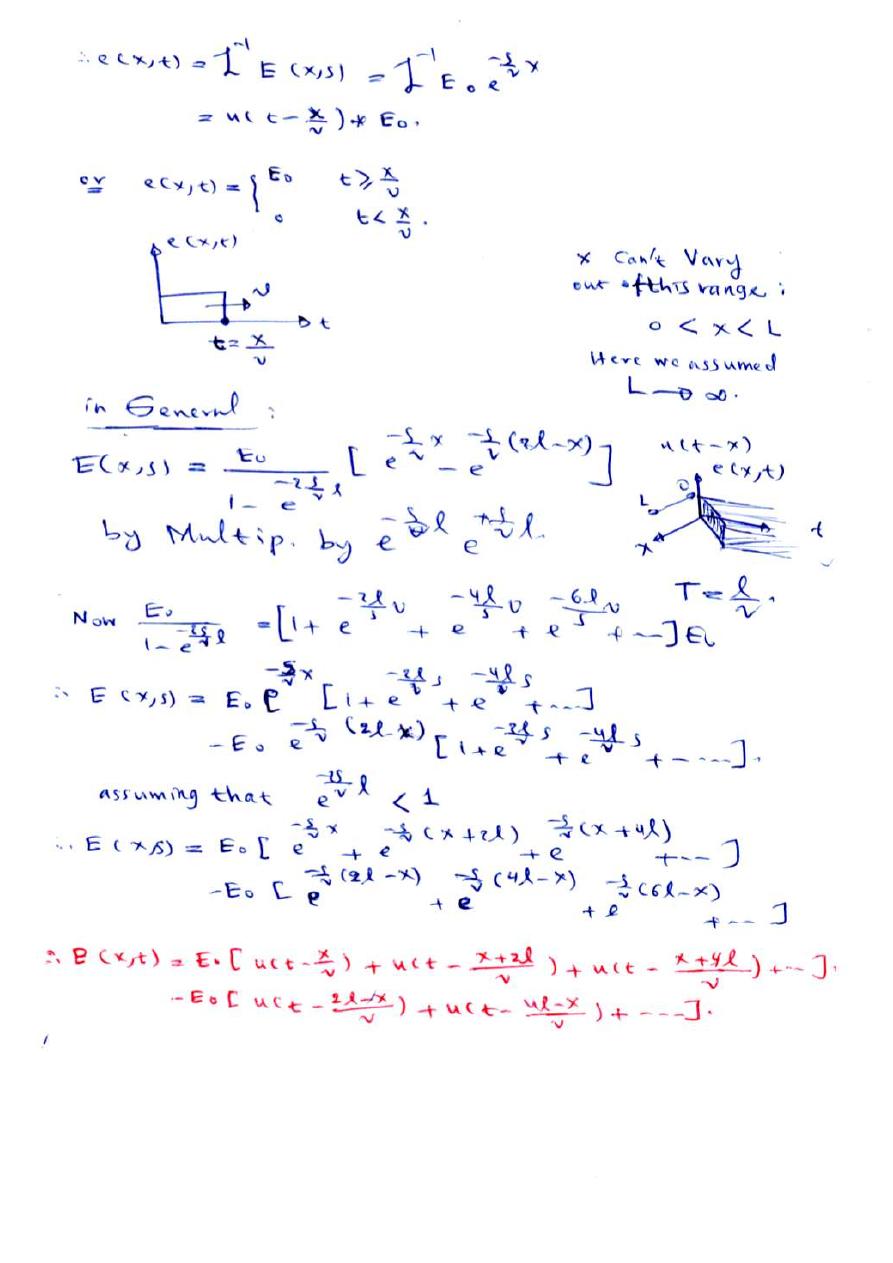 ∴ e(x,t) = L⁻¹ E(x,s) = L⁻¹ E₀ e^{-s/v x}
= u(t - x/v) * E₀.
or e(x,t) = { E₀ t ≥ x/v
0 t < x/v .
e(x,t)
v
t
t = x/v
* Can't Vary
out of this range :
0 < x < L
Here we assumed
L → ∞.
in General :
E(x,s) = E₀ / (1 - e^{-2 s/v l}) [ e^{-s/v x} - e^{-s/v (2l-x)} ]
u(t-x)
e(x,t)
0
L
x
t
by Multip. by e^{-s/v l} e^{+s/v l}.
T = l/v .
Now E₀ / (1 - e^{-2s/v l}) = [1 + e^{-2l/s v} + e^{-4l/s v} + e^{-6l/s v} + ---] E₀
∴ E(x,s) = E₀ e^{-s/v x} [1 + e^{-2l/v s} + e^{-4l/v s} + ....]
- E₀ e^{-s/v (2l-x)} [1 + e^{-2l/v s} + e^{-4l/v s} + -----].
assuming that e^{-2s/v l} < 1
∴ E(x,s) = E₀ [ e^{-s/v x} + e^{-s/v (x+2l)} + e^{-s/v (x+4l)} + --- ]
- E₀ [ e^{-s/v (2l-x)} + e^{-s/v (4l-x)} + e^{-s/v (6l-x)} + --- ]
∴ e(x,t) = E₀ [ u(t - x/v) + u(t - (x+2l)/v) + u(t - (x+4l)/v) + --- ].
- E₀ [ u(t - (2l-x)/v) + u(t - (4l-x)/v) + ---- ].